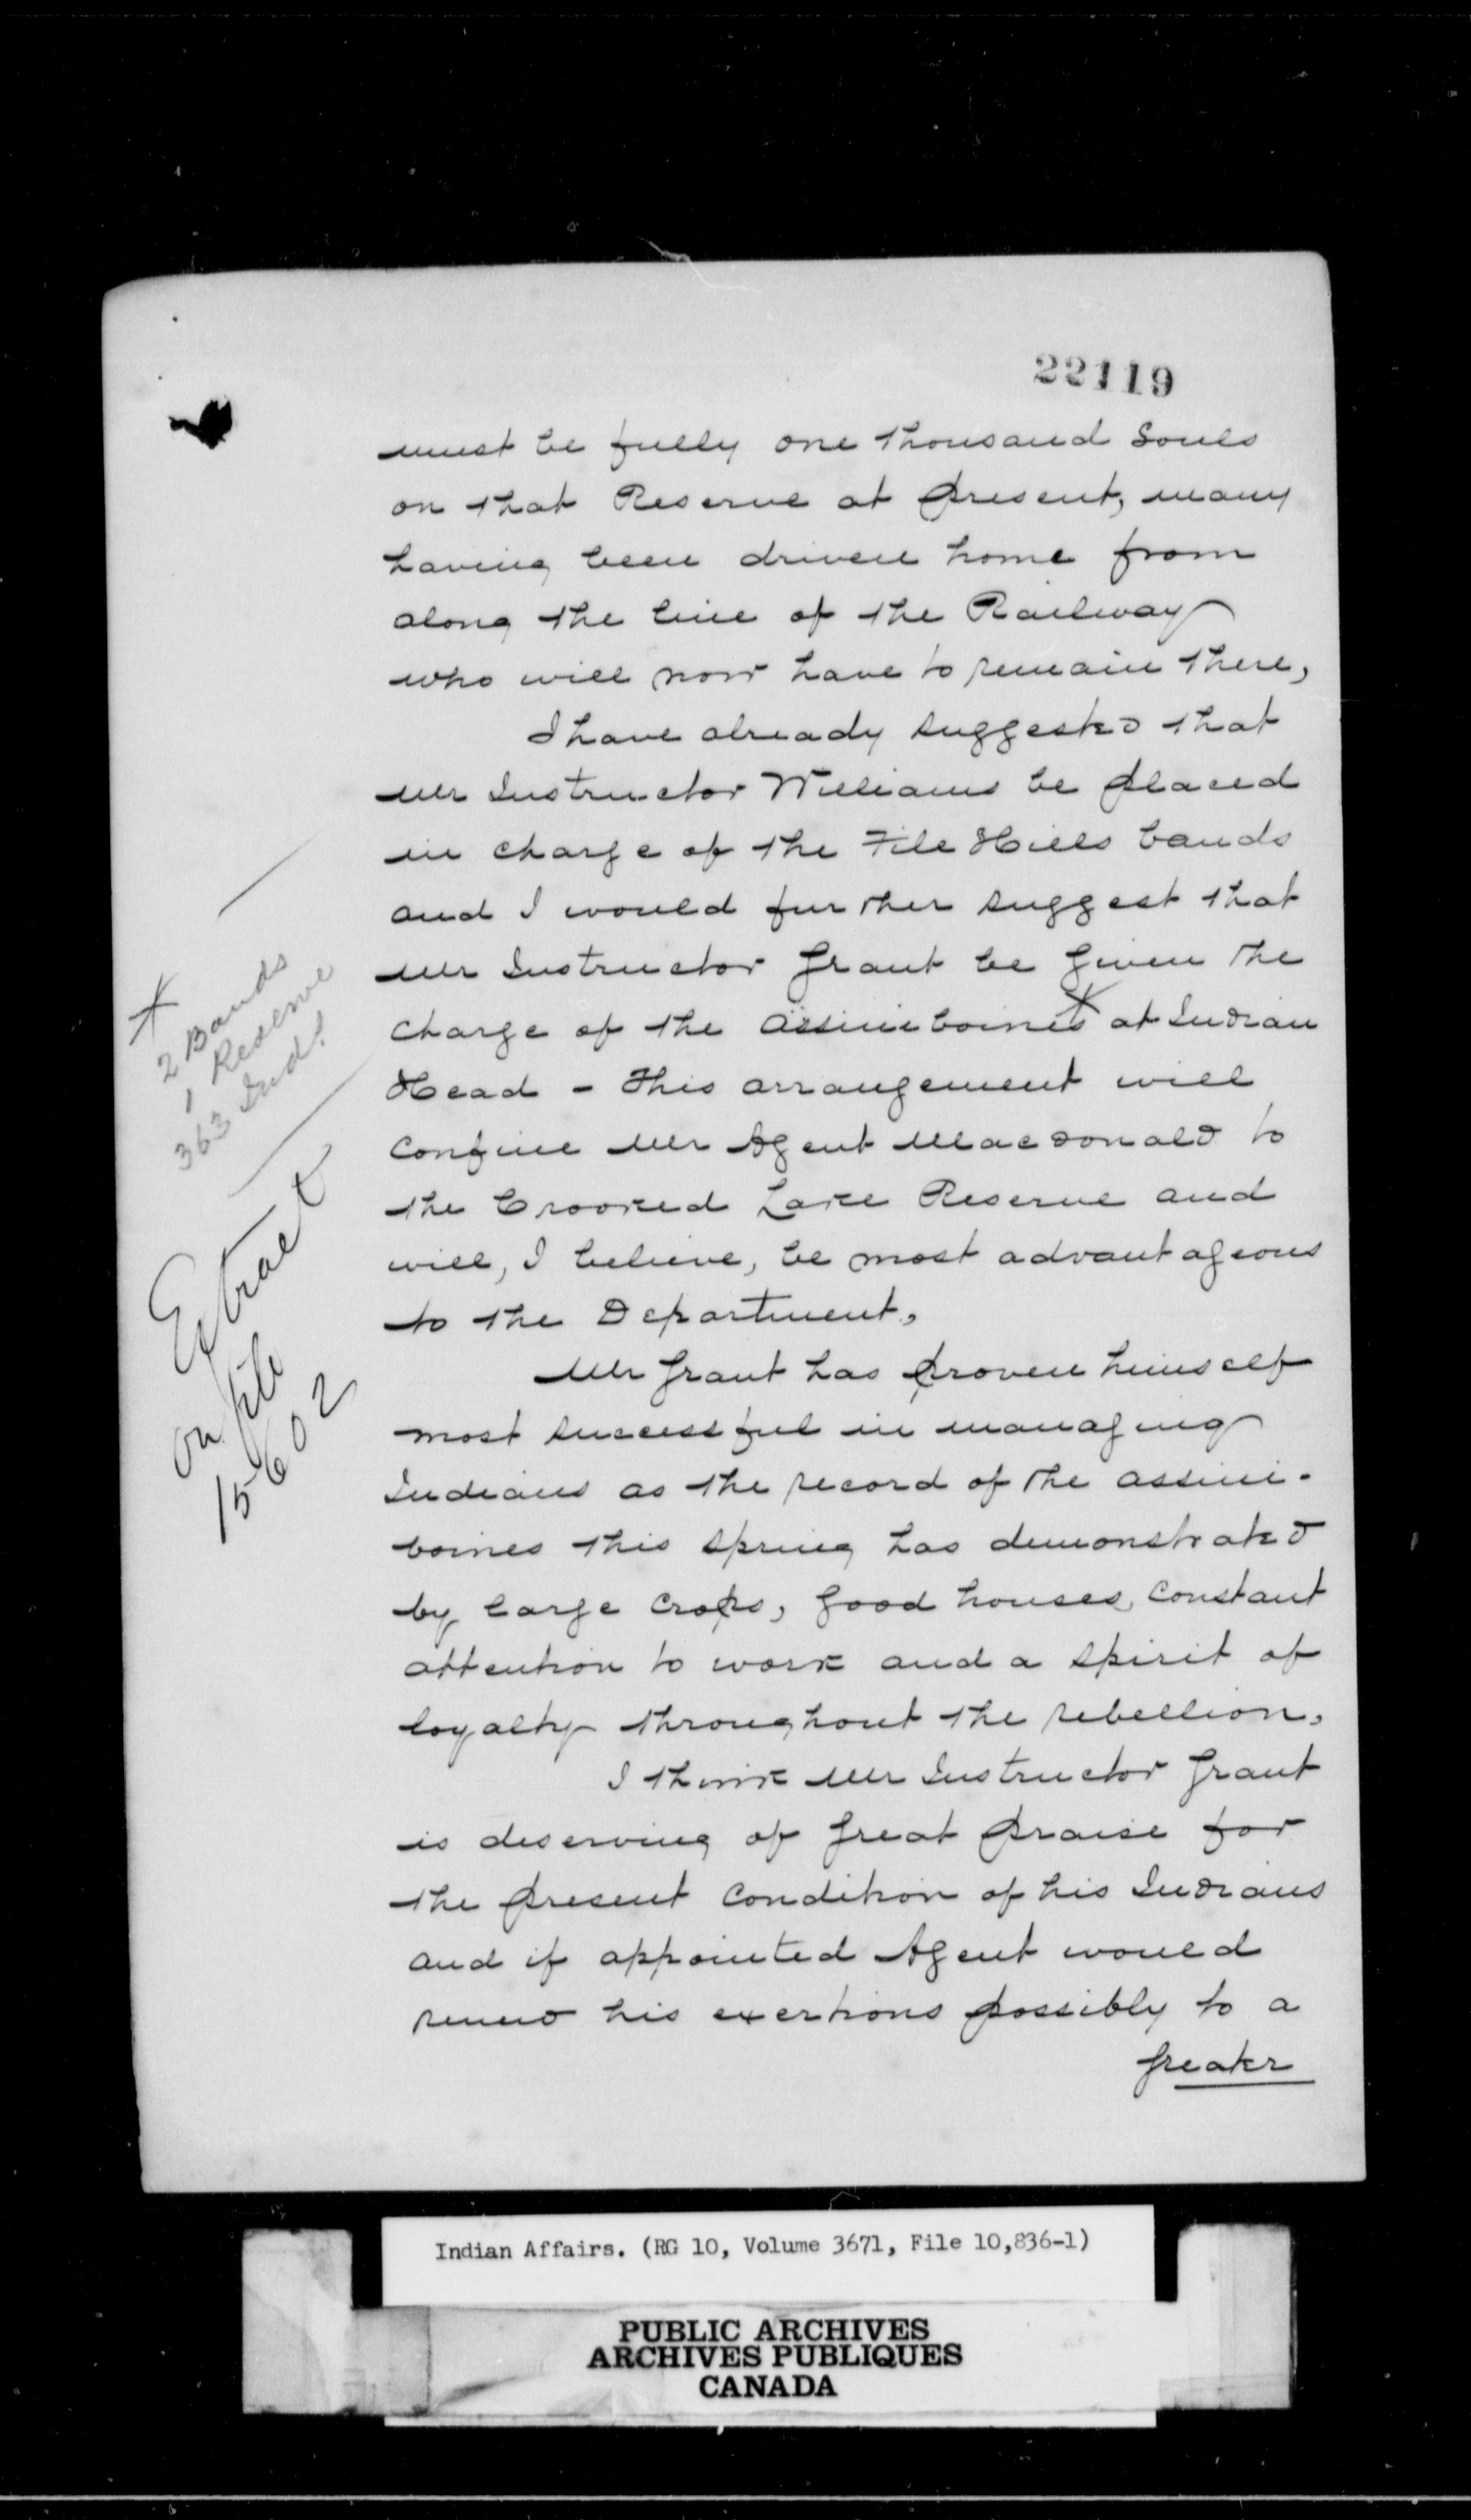 22119
must be fully one thousand souls
on that Reserve at present, many
having been driven home from
along the line of the Railway
who will now have to remain there,
I have already suggested that
Mr Instructor Williams be placed
in charge of the File Hills bands
and I would further suggest that
Mr Instructor Grant be given the
charge of the Assiniboines* at Indian
Head - This arrangement will
confine Mr Agent Macdonald to
the Crooked Lake Reserve and
will, I believe, be most advantageous
to the Department.
Mr Grant has proven himself
most successful in managing
Indians as the record of the Assini-
boines this spring has demonstrated
by large crops, good houses, constant
attention to work and a spirit of
loyalty throughout the rebellion.
I think Mr Instructor Grant
is deserving of great praise for
the present condition of his Indians
and if appointed Agent would
renew his exertions possibly to a
greater
*
2 Bands
1 Reserve
363 Inds
Extract
on file
15602
Indian Affairs. (RG 10, Volume 3671, File 10,836-1)
PUBLIC ARCHIVES
ARCHIVES PUBLIQUES
CANADA